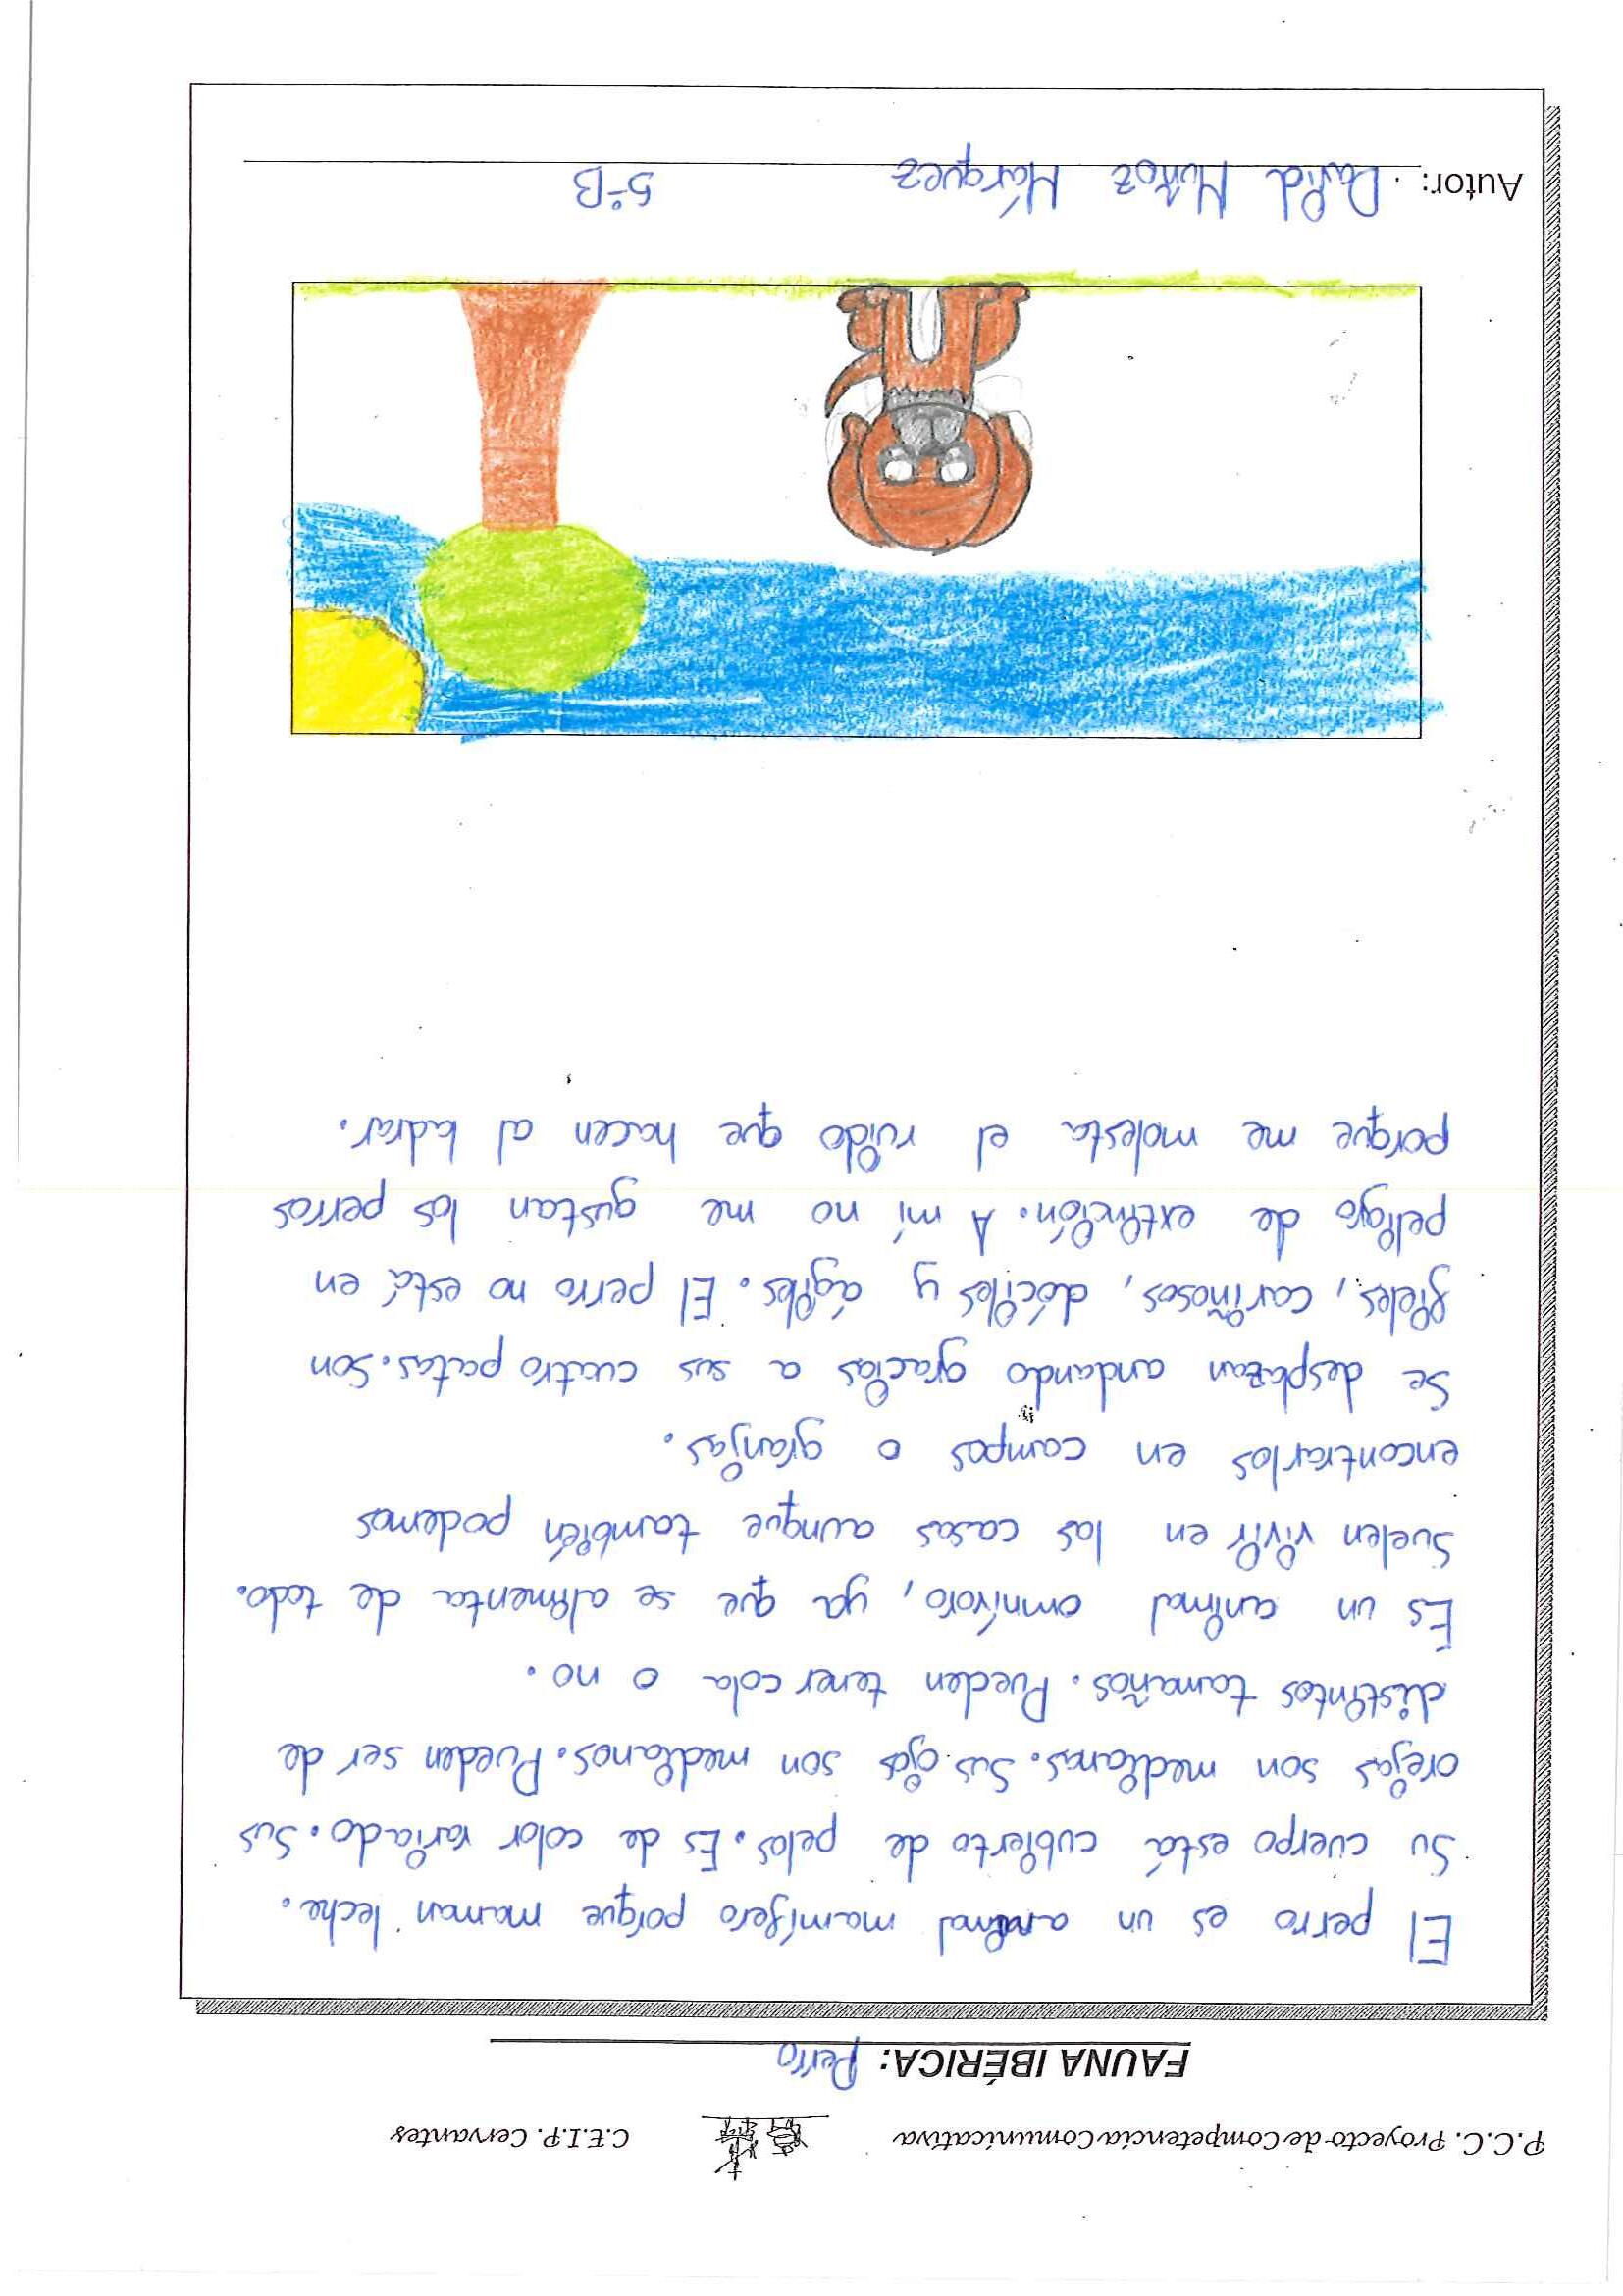 P.C.C. Proyecto de Competencia Comunicativa C.E.I.P. Cervantes
FAUNA IBÉRICA: Perro
El perro es un animal mamífero porque maman leche.
Su cuerpo está cubierto de pelos. Es de color variado. Sus
orejas son medianas. Sus ojos son medianos. Pueden ser de
distintos tamaños. Pueden tener cola o no.
Es un animal omnívoro, ya que se alimenta de todo.
Suelen vivir en las casas aunque también podemos
encontrarlos en campos o granjas.
Se desplazan andando gracias a sus cuatro patas. Son
fieles, cariñosos, dóciles y ágiles. El perro no está en
peligro de extinción. A mí no me gustan los perros
porque me molesta el ruido que hacen al ladrar.
Autor: David Muñoz Márquez 5ºB